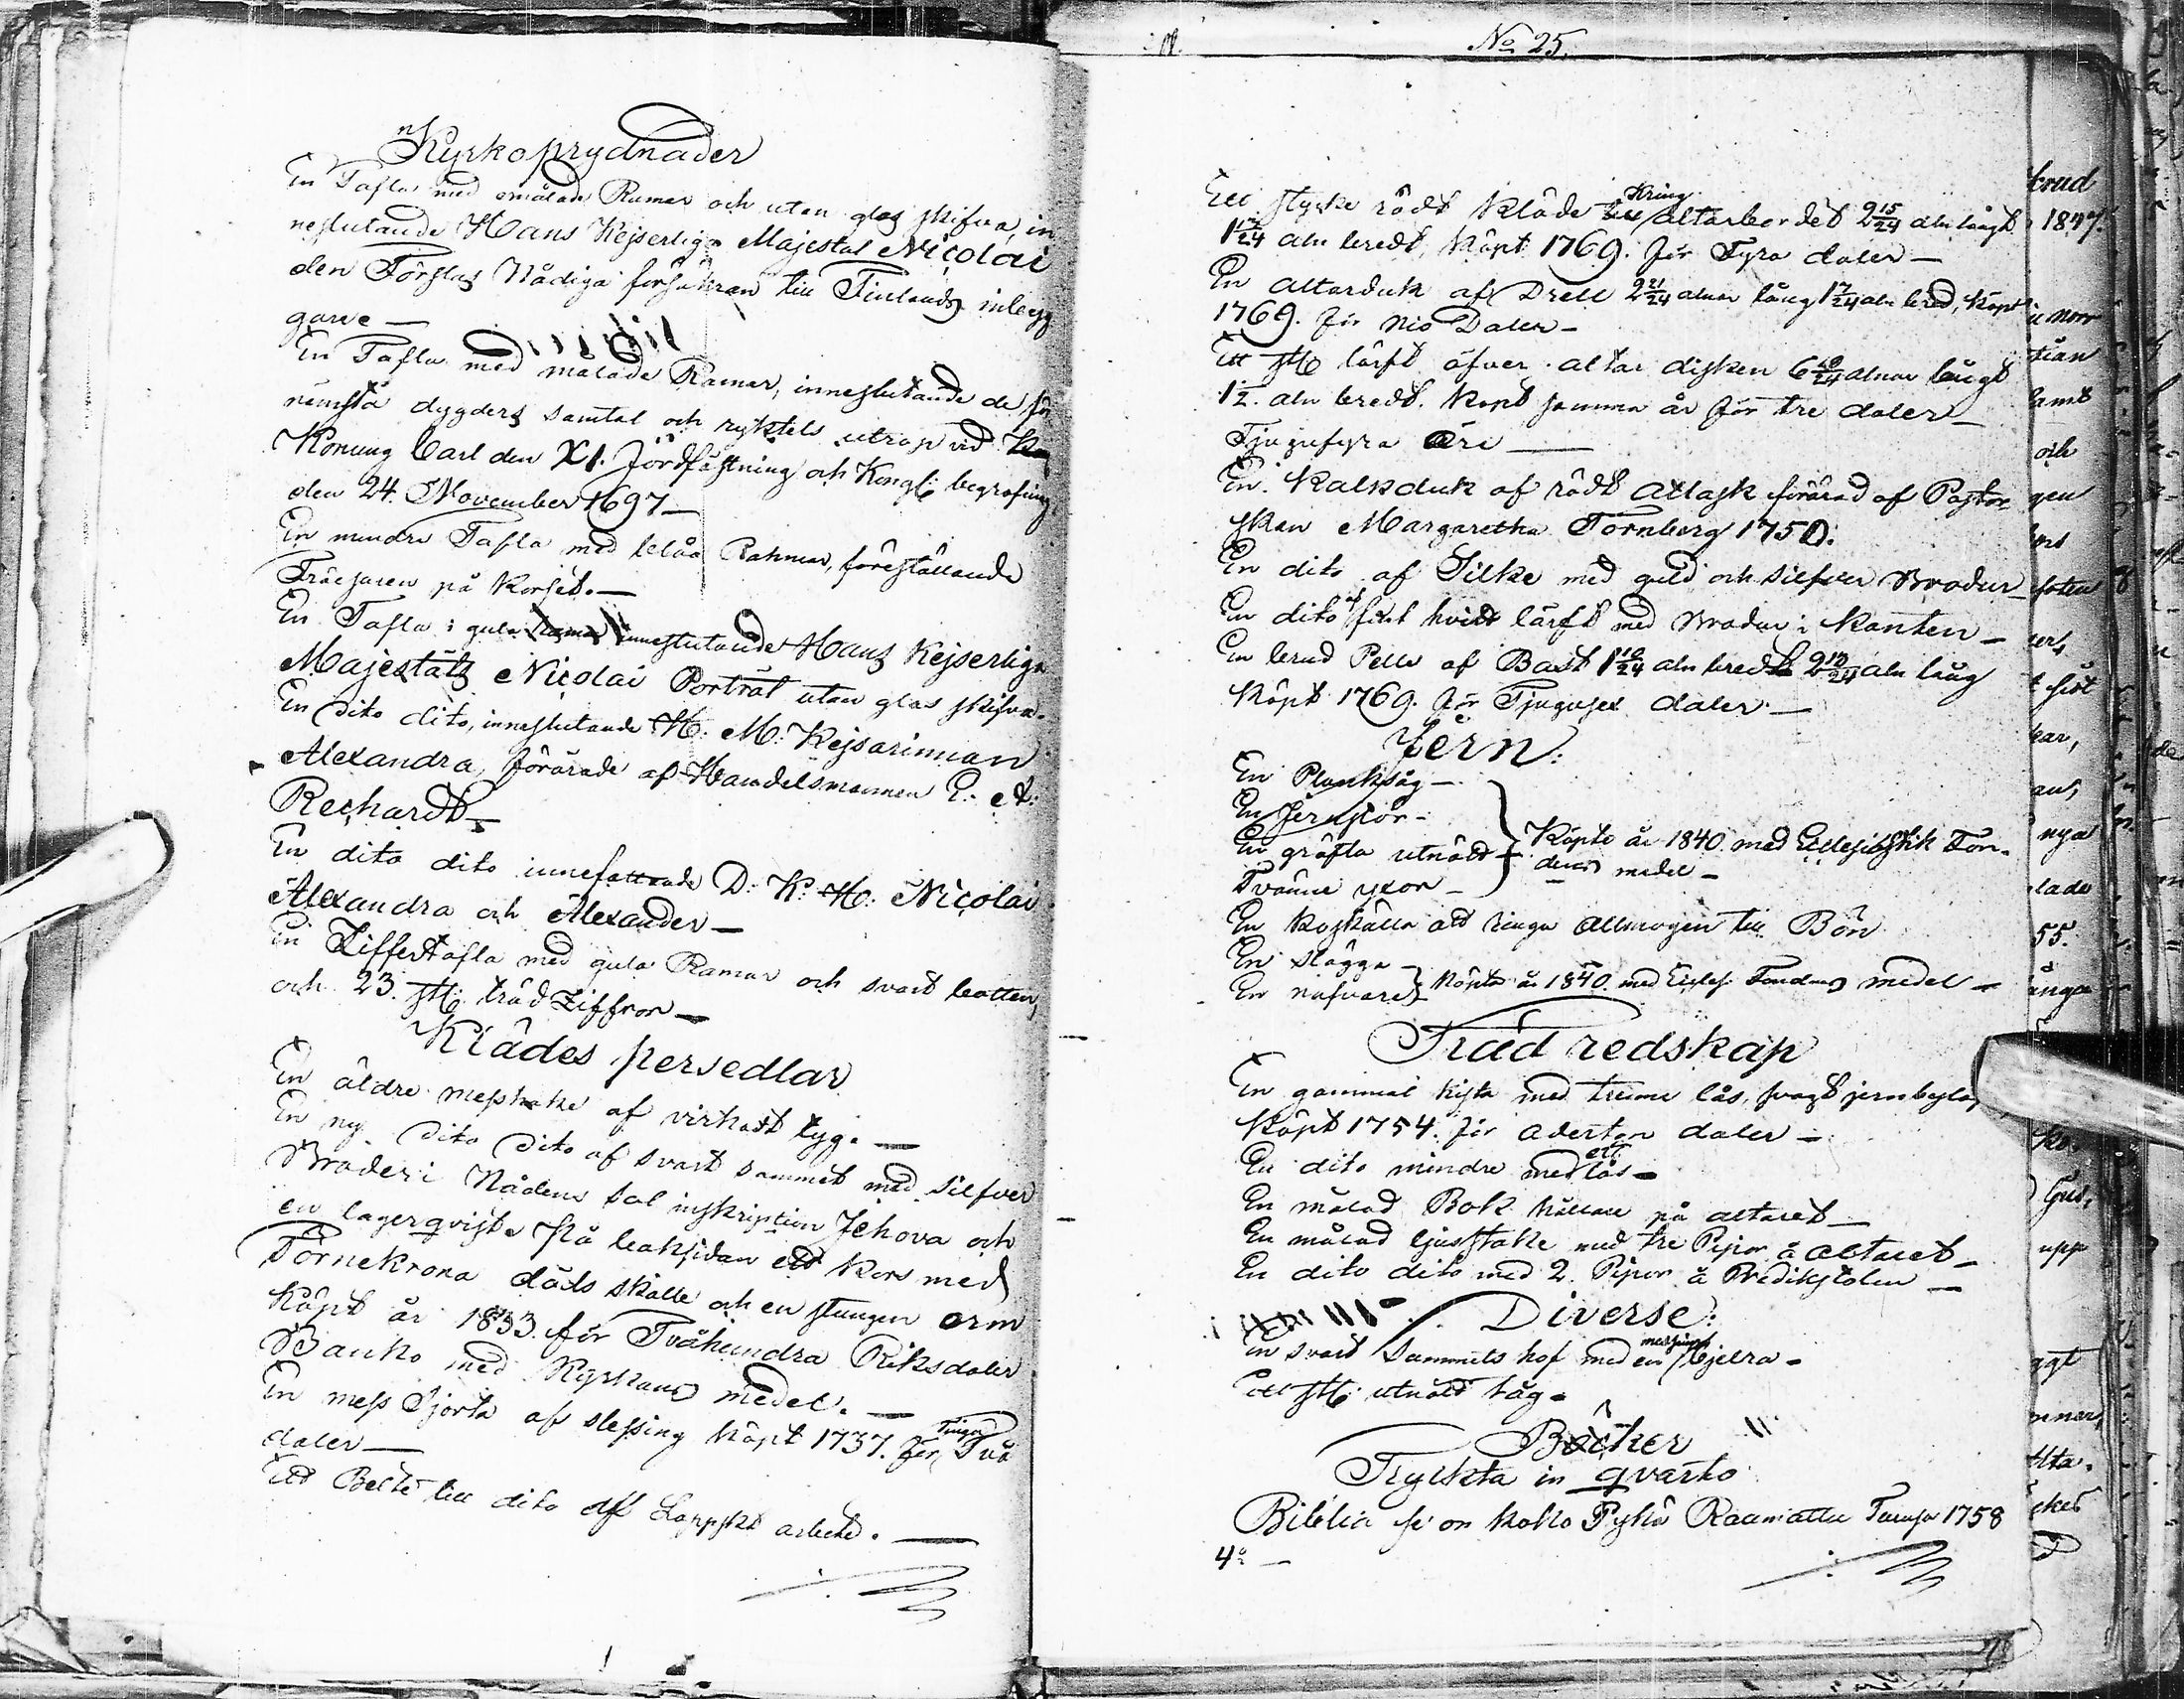 Kyrkoprydnader
En Tafla med omålade Ramar och utan glas skifva, in
neslutande Hans Kejserliga Majestät Nicolai
den Förstas Nådiga försäkran till Finlands inbygg
gare —
En Tafla med målade Ramar, inneslutande de för
nämsta dygders samtal och ryktets utrop vid
Konung Carl den XI. Jordfästning och Kongl: begrafning
den 24. November 1697 —
En mindre Tafla med blåa Rahmar, föreställande
Frälsaren på Korset. —
En Tafla i gula Ramar inneslutande Hans Kejserliga
Majestäts Nicolai Porträt utan glas skifva.
En dito dito, inneslutande H. M: Kejsarinnan
Alexandra, förärade af Handelsmannen
Rechardt —
En dito dito innefattande D: K: H: Nicolai
Alexandra och Alexander —
En Ziffertafla med gula Ramar och svart botten,
och 23. st: träd Ziffror —
Klädes persedlar
En äldre messhake af virkadt tyg. —
En ny dito dito af svart sammet med silfver
Broderi Nådens sol inskription Jehova och
en lagerqvist. På baksidan ett kors med
Törnekrona döds skalle och en stungen orm
köpt år 1833. för Tvåhundra Riksdaler
Banko med Kyrkans medel. —
En mess Sjorta af slessing köpt 1737. för Tjugu Två
daler —
Ett Belte till dito af Lappskt arbete. —
No 25.
Ett stycke rödt kläde Kring altarbordet 2 15/24 aln långt
aln bredt, köpt 1769. för Fyra daler —
En altarduk af Drell 2 21/24 alnar lång 1 17/24 aln bred, köpt
1769. för Nio Daler —
Ett st: lärft öfver altar disken alnar långt
1½ aln bredt. Köpt samma år för tre daler
Tjugufyra öre —
En Kalkduk af rödt atlask förärad af Pastor
skan Margaretha Törnberg 1750.
En dito af Silke med guld och silfver Brodur
En dito af fint hvitt lärft med Brodur i kanten —
En brud Pell af Bast 1 10/24 aln bredt aln lång
köpt 1769. för Tjugusex daler. —
Jern:
En Planksåg —
En Jernstör —
En gräfta utnött —
Tvänne yxor —
Köpte år 1840 med Ecclesiastik Fon-
dens medel —
En koskälla att ringa allmogen till Bön
En slägga —
En nafvare
Köpta år 1840. med Eccles: Fondens medel —
Träd redskap
En gammal kista med tvenne lås, svagt jernbeslag
köpt 1754. för aderton daler —
En dito mindre med ett lås —
En målad Bok hållare på altaret —
En målad ljusstake med tre Pipor å altaret —
En dito dito med 2. Pipor å Predikstolen —
Diverse:
En svart Sammets hof med en messings bjelra —
Ett st: utnött tåg —
Böcker
Tryckta in qvarto
Biblia se on koko Pyhä Raamattu Turusa 1758
4o —